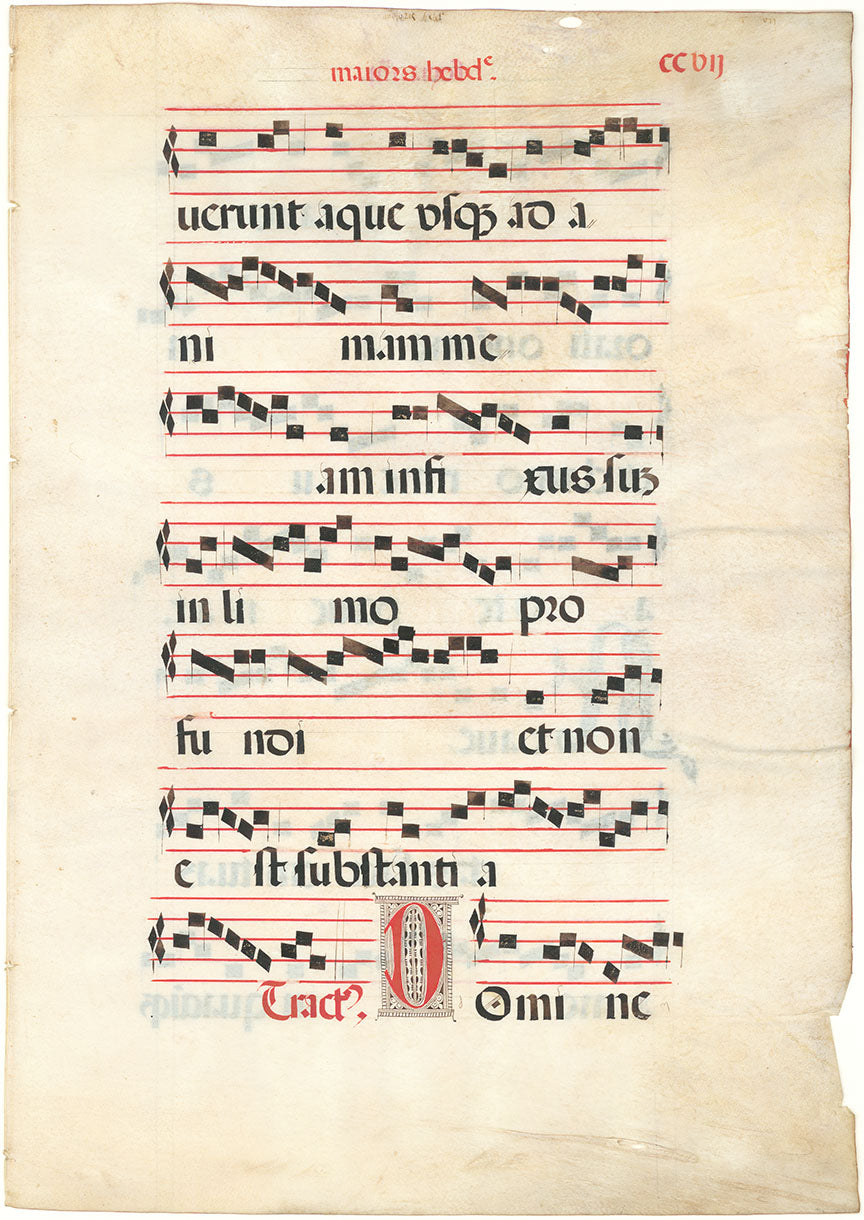 maiors hebdᵉ.
CCVII
uerunt aque vsqꝫ ad a
ni mamme
am infi xus suꝫ
in li mo pro
fu ndi et non
e st substanti a
Tractꝰ. D Omi ne